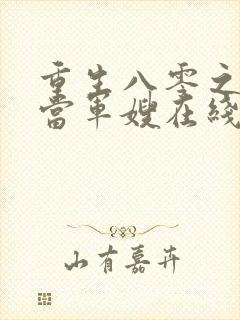 重生八零之
當軍嫂在綫
山有嘉卉